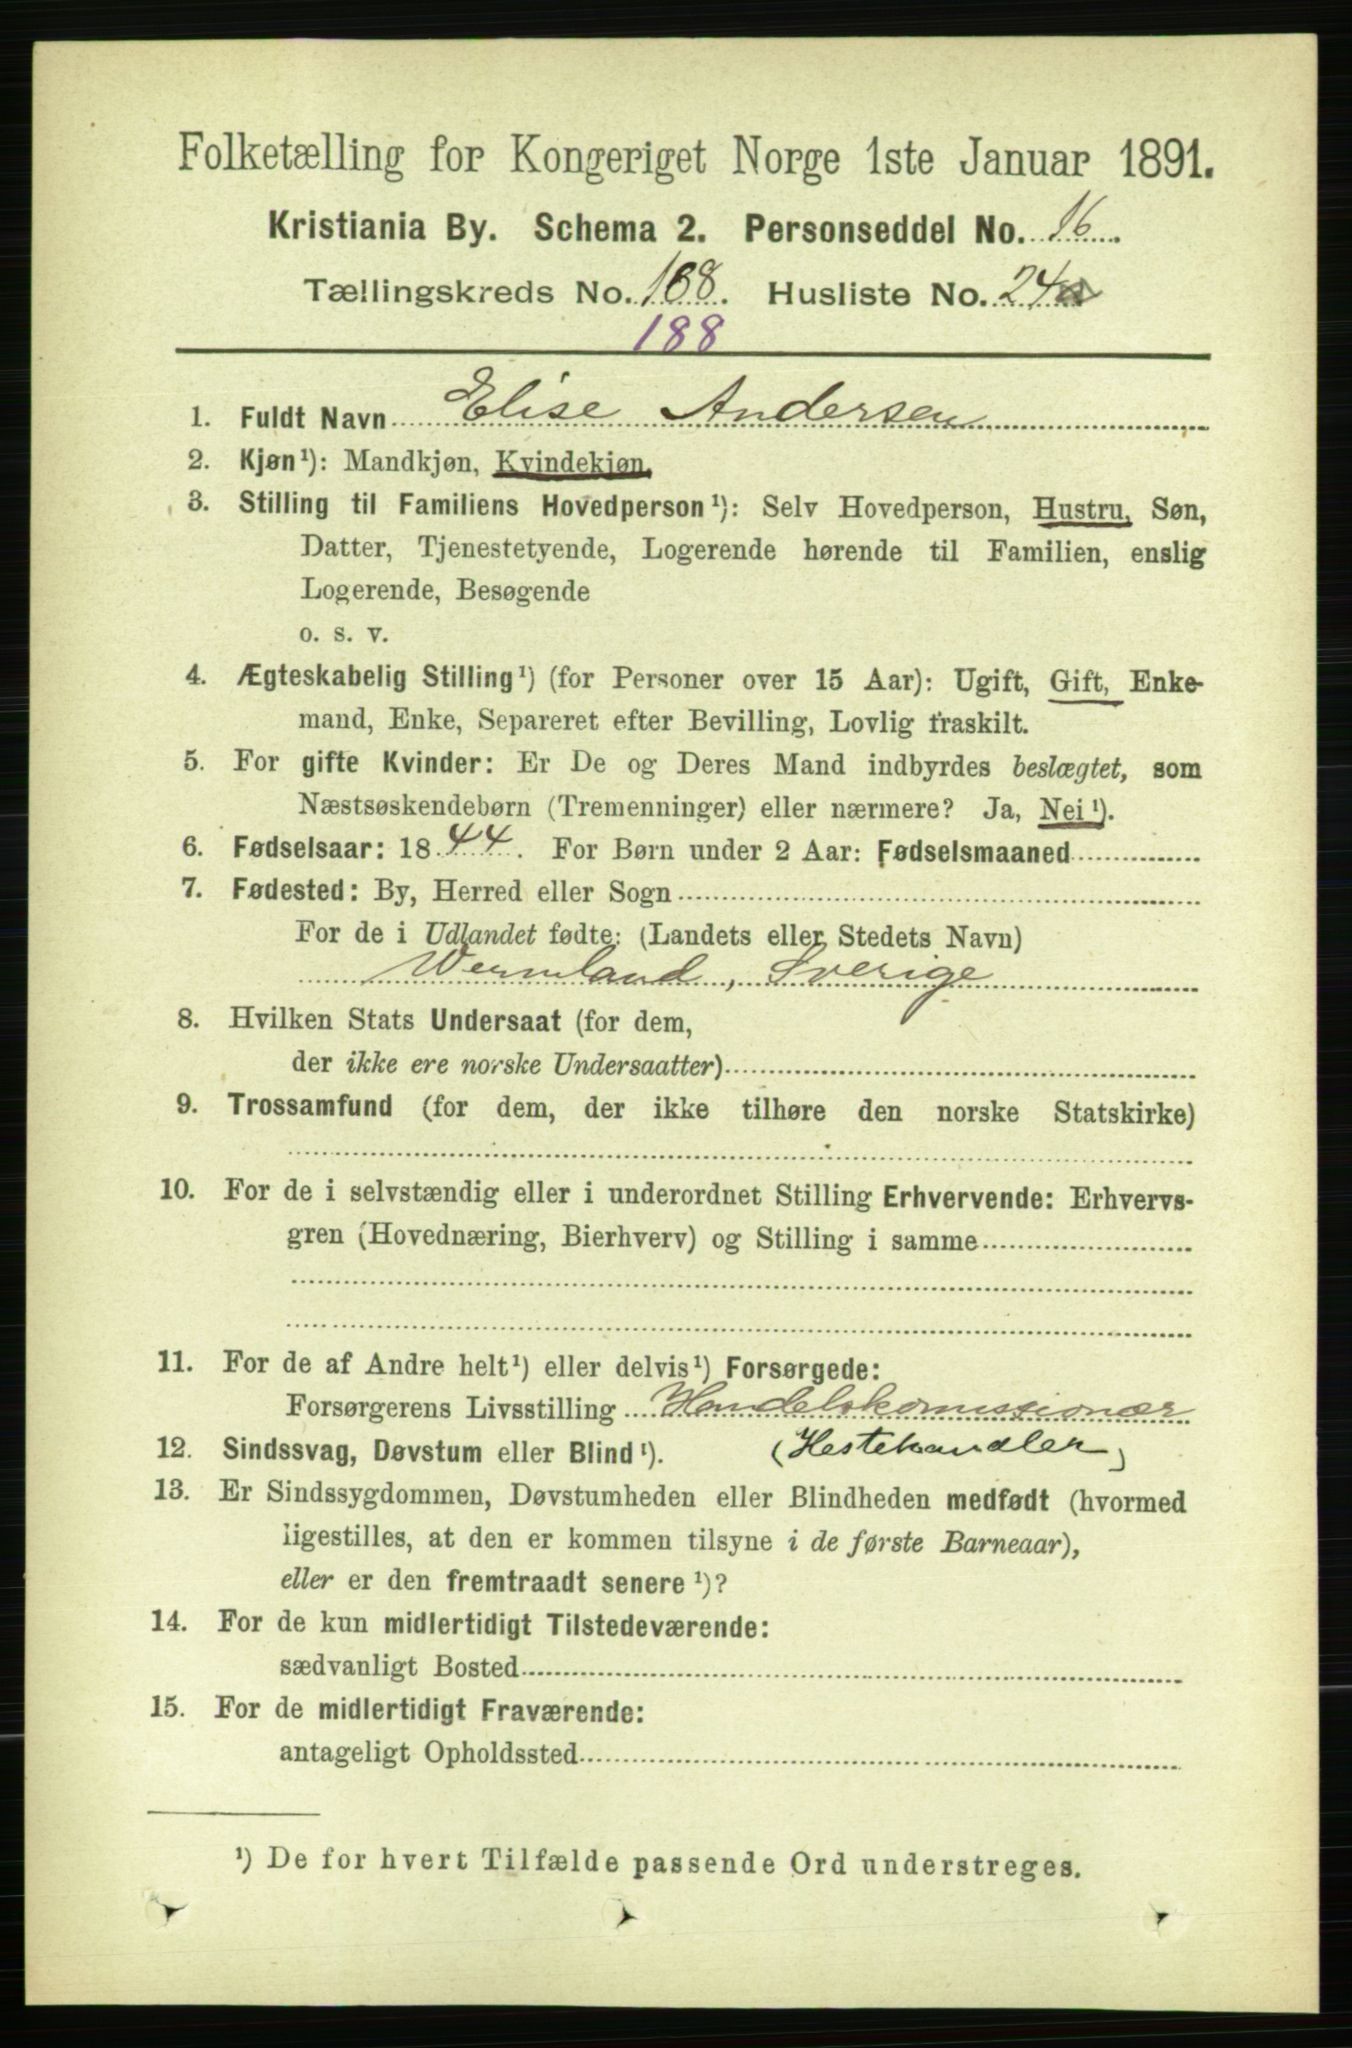 Folketælling for Kongeriget Norge 1ste Januar 1891.
Kristiania By. Schema 2. Personseddel No. 16.
Tællingskreds No. 188. Husliste No. 24a
188
1. Fuldt Navn Elise Andersen
2. Kjøn¹): Mandkjøn, Kvindekjøn.
3. Stilling til Familiens Hovedperson¹): Selv Hovedperson, Hustru, Søn,
Datter, Tjenestetyende, Logerende hørende til Familien, enslig
Logerende, Besøgende
o. s. v.
4. Ægteskabelig Stilling¹) (for Personer over 15 Aar): Ugift, Gift, Enke-
mand, Enke, Separeret efter Bevilling, Lovlig fraskilt.
5. For gifte Kvinder: Er De og Deres Mand indbyrdes beslægtet, som
Næstsøskendebørn (Tremenninger) eller nærmere? Ja, Nei¹).
6. Fødselsaar: 1844. For Børn under 2 Aar: Fødselsmaaned
7. Fødested: By, Herred eller Sogn
For de i Udlandet fødte: (Landets eller Stedets Navn)
Wermland, Sverige
8. Hvilken Stats Undersaat (for dem,
der ikke ere norske Undersaatter)
9. Trossamfund (for dem, der ikke tilhøre den norske Statskirke)
10. For de i selvstændig eller i underordnet Stilling Erhvervende: Erhvervs-
gren (Hovednæring, Bierhverv) og Stilling i samme
11. For de af Andre helt¹) eller delvis¹) Forsørgede:
Forsørgerens Livsstilling Handelskomissionær
12. Sindssvag, Døvstum eller Blind¹). (Hestehandler)
13. Er Sindssygdommen, Døvstumheden eller Blindheden medfødt (hvormed
ligestilles, at den er kommen tilsyne i de første Barneaar),
eller er den fremtraadt senere¹)?
14. For de kun midlertidigt Tilstedeværende:
sædvanligt Bosted
15. For de midlertidigt Fraværende:
antageligt Opholdssted
¹) De for hvert Tilfælde passende Ord understreges.